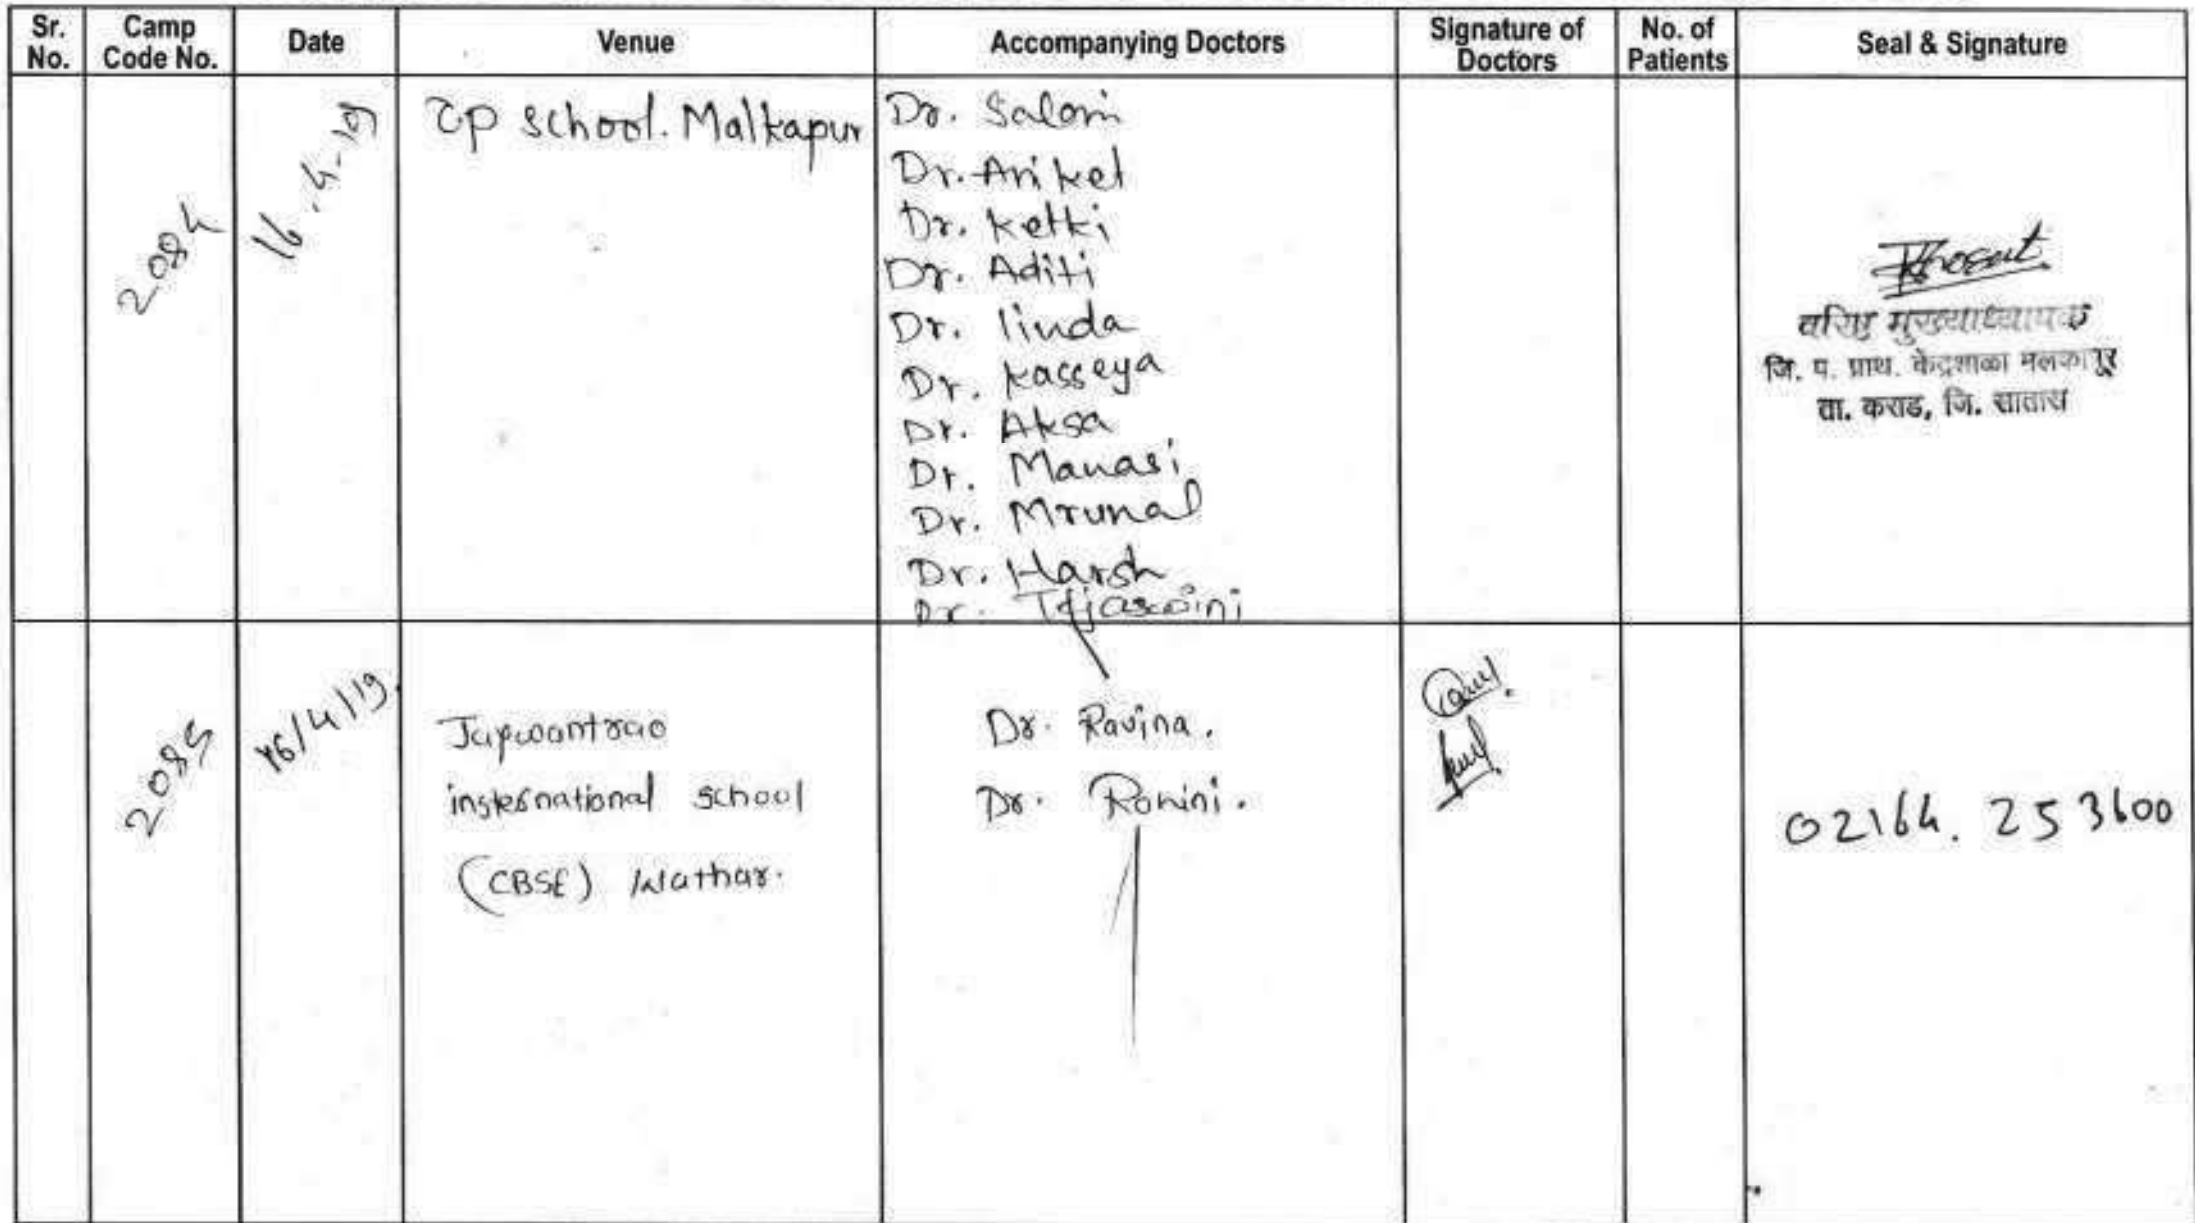 Sr. No. Camp Code No. Date Venue Accompanying Doctors Signature of Doctors No. of Patients Seal & Signature
2084 16.4-19 ZP school. Malkapur Dr. Saloni
Dr. Aniket
Dr. Ketki
Dr. Aditi
Dr. linda
Dr. Kasseya
Dr. Aksa
Dr. Manasi
Dr. Mrunal
Dr. Harsh
Dr. Tejaswini
वरिष्ठ मुख्याध्यापक
जि. प. प्राथ. केंद्रशाळा मलकापूर
ता. कराड, जि. सातारा
2085 16/4/19. Jaywantrao Dr. Ravina.
international school Dr. Rohini. 02164. 253600
(CBSE) Wathar.